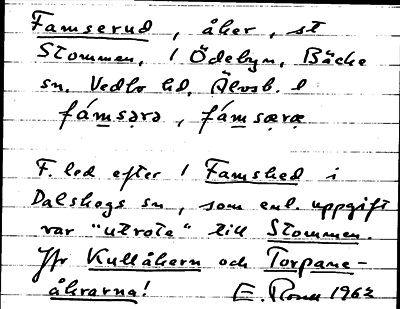 Famserud, åker, st
Stommen, / Ödebyn, Bäcke
sn, Vedbo hd, Älvsb. l
fámsərə, fámsəræ
F. led efter / Famshed i
Dalskogs sn, som enl. uppgift
var "utrote" till Stommen.
Jfr Kullåkern och Torpane-
åkrarna! E. 1962